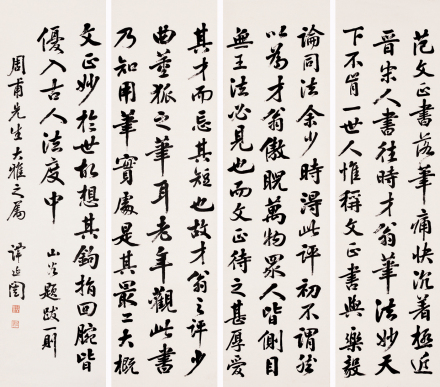 范文正書落筆痛快沉著極近
晉宋人書往時才翁筆法妙天
下不肯一世人惟稱文正書與樂毅
論同法余少時得此評初不謂然
以為才翁傲睨萬物眾人皆側目
無王法必見也而文正待之甚厚愛
其才而忌其短也故才翁之評少
曲董狐之筆耳老年觀此書
乃知用筆實處是其最工大概
文正妙於世故想其鉤指回腕皆
優入古人法度中 山谷題跋一則
周甫先生大雅之屬 譚延闓